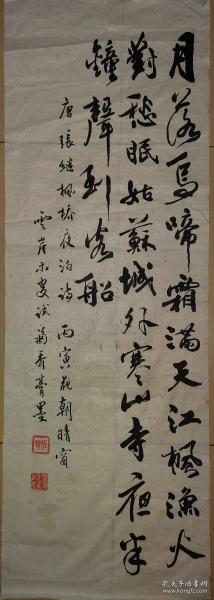 月落烏啼霜滿天江楓漁火
對愁眠姑蘇城外寒山寺夜半
鐘聲到客船
唐張繼楓橋夜泊詩 丙寅花朝晴窗
雲崖木叟試菊香膏墨
孔夫子旧书网